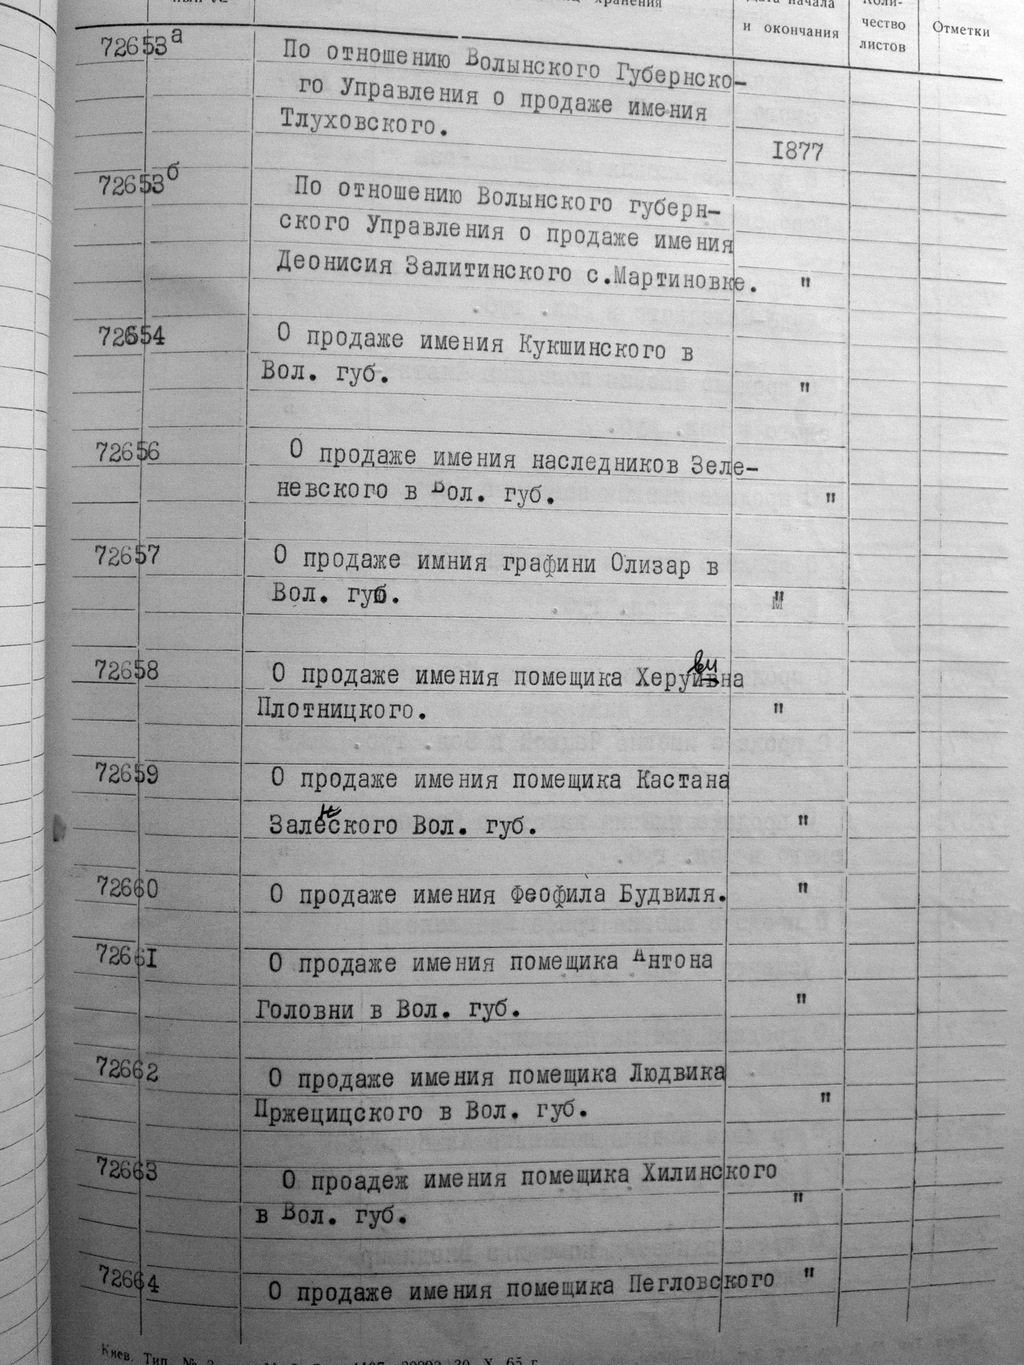 хранения
и окончания
чество
листов
Отметки
72653а
По отношению Волынского Губернско-
го Управления о продаже имения
Тлуховского.
1877
72653б
По отношению Волынского губерн-
ского Управления о продаже имения
Деонисия Залитинского с.Мартиновке. "
72654
О продаже имения Кукшинского в
Вол. губ. "
72656
О продаже имения наследников Зеле-
невского в Вол. губ. "
72657
О продаже имния графини Олизар в
Вол. губ. "
72658
О продаже имения помещика
Плотницкого. "
72659
О продаже имения помещика Кастана
Вол. губ. "
72660
О продаже имения Феофила Будвиля. "
72661
О продаже имения помещика Антона
Головни в Вол. губ. "
72662
О продаже имения помещика Людвика
Пржецицского в Вол. губ. "
72663
О проадеж имения помещика Хилинского
в Вол. губ. "
72664
О продаже имения помещика Пегловского "
Киев. Тип.